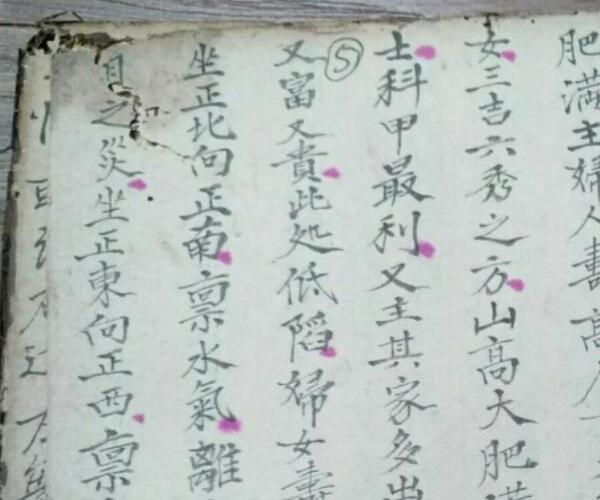 肥满主婦人壽高
女三吉六秀之方山高大肥
士科甲最利又主其家多出
又富又貴此処低陷婦女壽
⑤
坐正北向正南禀水氣離
目之災坐正東向正西禀